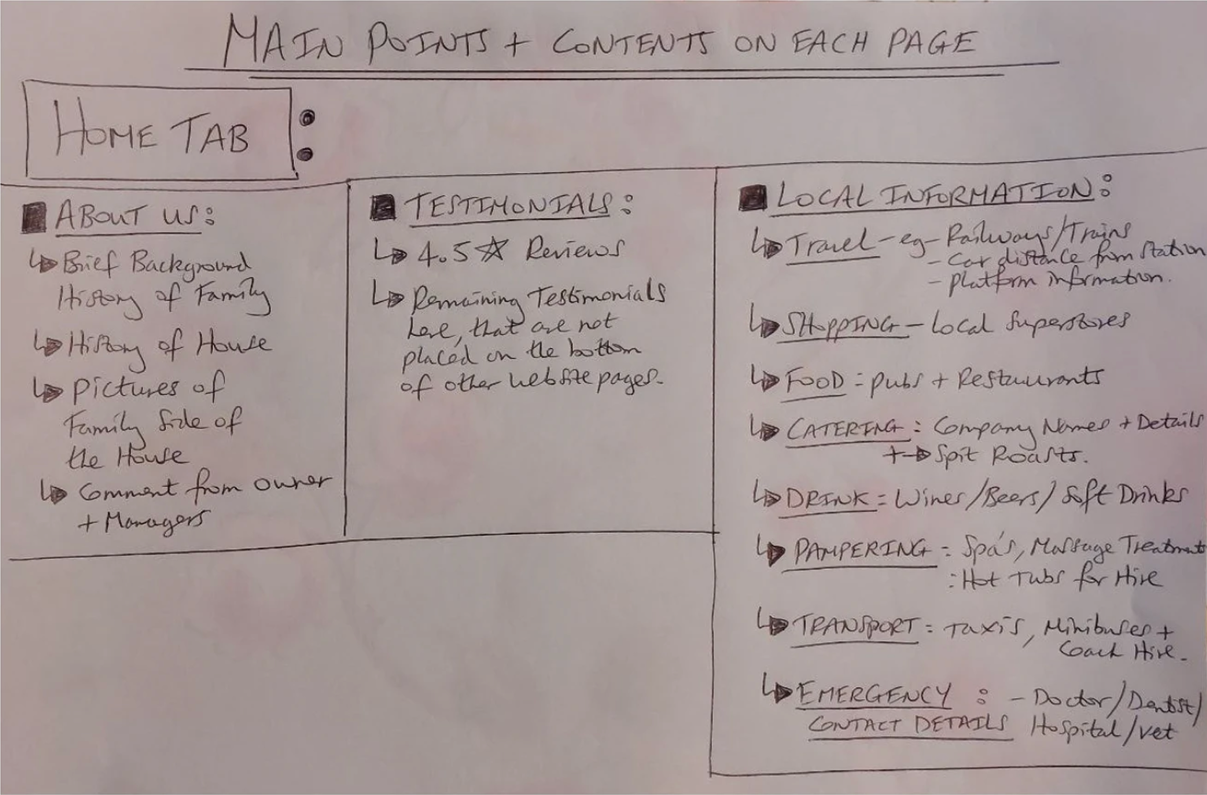 MAIN POINTS + CONTENTS ON EACH PAGE
HOME TAB :
ABOUT US:
Brief Background
History of Family
History of House
Pictures of
Family Side of
the House
Comment from owner
+ Managers
TESTIMONIALS:
4.5☆ Reviews
Remaining Testimonials
here, that are not
placed on the bottom
of other website pages.
LOCAL INFORMATION:
Travel - eg - Railways/Trains
- Car distance from station
- Platform information.
SHOPPING - Local Superstores
FOOD = Pubs + Restaurants
CATERING : Company Names + Details
+ → Spit Roasts.
DRINK = Wines/Beers/Soft Drinks
PAMPERING = Spa's, Massage Treatment
: Hot Tubs for Hire
TRANSPORT = Taxis, Minibuses +
Coach Hire.
EMERGENCY : - Doctor/Dentist/
CONTACT DETAILS Hospital/vet